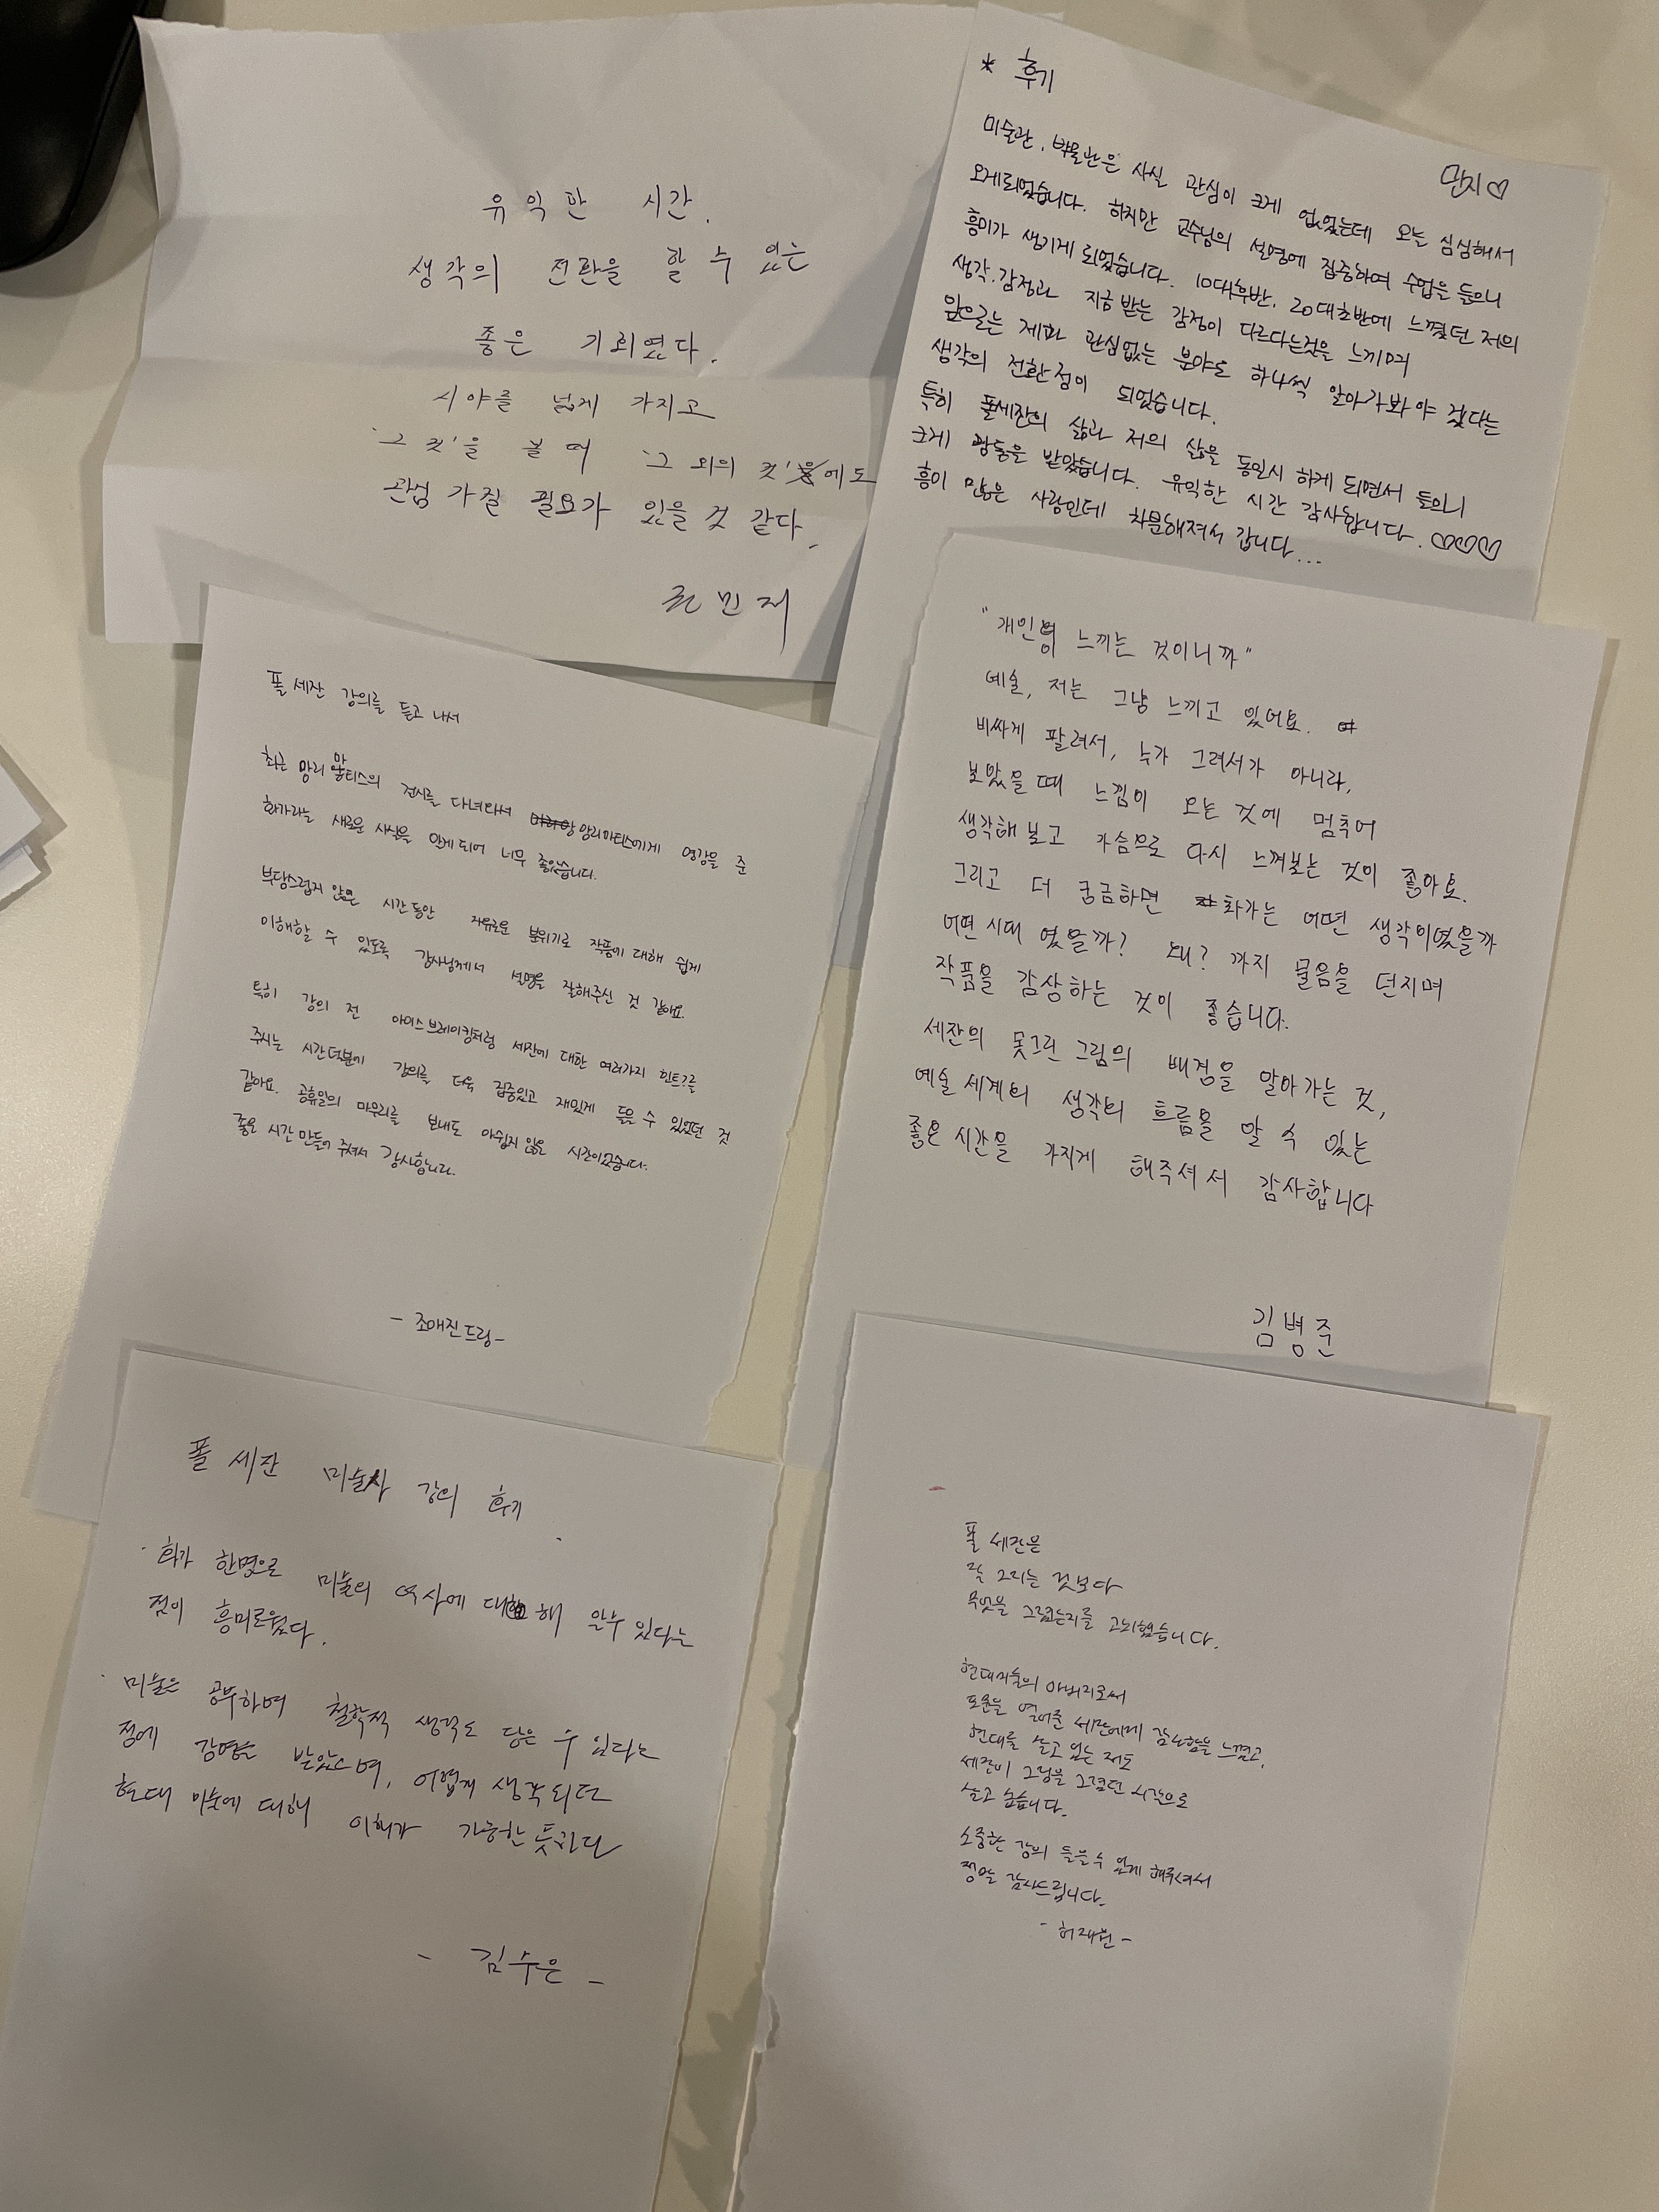 유익한 시간.
생각의 전환을 할 수 있는
좋은 기회였다.
시야를 넓게 가지고
'그 것'을 볼 때 '그 외의 것'에도
관심 가질 필요가 있을 것 같다.
민재
* 후기
민지♡
미술관, 박물관은 사실 관심이 크게 없었는데 오늘 심심해서
오게되었습니다. 하지만 교수님의 설명에 집중하여 수업을 들으니
흥미가 생기게 되었습니다. 10대후반, 20대초반에 느꼈던 저의
생각.감정과 지금 받는 감정이 다르다는것을 느끼며
앞으로는 제가 관심없는 분야도 하나씩 알아가봐야 겠다는
생각의 전환점이 되었습니다.
특히 폴세잔의 삶과 저의 삶을 동일시 하게 되면서 들으니
크게 감동을 받았습니다. 유익한 시간 감사합니다. ♡♡♡
흥이 많은 사람인데 차분해져서 갑니다...
폴 세잔 강의를 듣고 나서
최근 앙리 마티스의 전시를 다녀와서 앙리마티스에게 영감을 준
화가라는 새로운 사실을 알게 되어 너무 좋았습니다.
부담스럽지 않은 시간동안 자유로운 분위기로 작품에 대해 쉽게
이해할 수 있도록 강사님께서 설명을 잘해주신 것 같아요.
특히 강의 전 아이스브레이킹처럼 세잔에 대한 여러가지 힌트?를
주시는 시간덕분에 강의를 더욱 집중있고 재밌게 들을 수 있었던 것
같아요. 공휴일의 마무리를 보내도 아쉽지 않은 시간이었습니다.
좋은 시간 만들어 주셔서 감사합니다.
- 조애진 드림 -
"개인이 느끼는 것이니까"
예술, 저는 그냥 느끼고 있어요.
비싸게 팔려서, 누가 그려서가 아니라,
보았을 때 느낌이 오는 것에 멈추어
생각해 보고 가슴으로 다시 느껴보는 것이 좋아요.
그리고 더 궁금하면 화가는 어떤 생각이였을까
어떤 시대 였을까? 왜? 까지 물음을 던지며
작품을 감상하는 것이 좋습니다.
세잔의 못그린 그림의 배경을 알아가는 것,
예술 세계의 생각의 흐름을 알 수 있는
좋은 시간을 가지게 해주셔서 감사합니다
김병준
폴 세잔 미술사 강의 후기
· 화가 한명으로 미술의 역사에 대해 알수 있다는
점이 흥미로웠다.
· 미술은 공부하며 철학적 생각도 담을 수 있다는
점에 감명을 받았으며, 어렵게 생각되던
현대 미술에 대해 이해가 가능한 듯하다
- 김수은 -
폴 세잔은
잘 그리는 것보다
무엇을 그렸는지를 고뇌했습니다.
현대미술의 아버지로써
포문을 열어준 세잔에게 감사함을 느꼈고,
현대를 살고 있는 저도
세잔이 그림을 그렸던 시간으로
살고 싶습니다.
소중한 강의 들을수 있게 해주셔서
정말 감사드립니다.